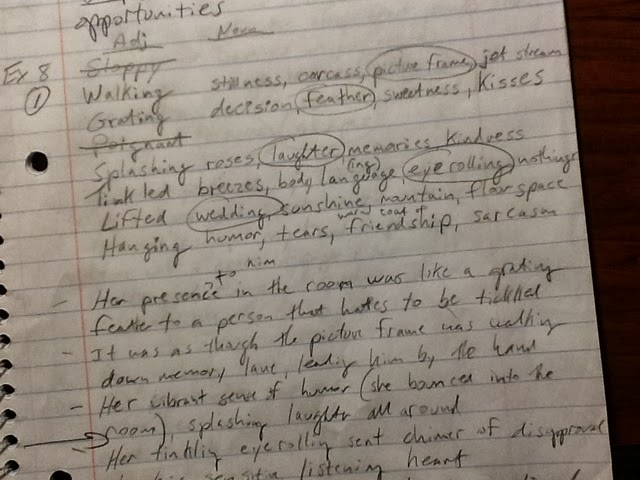 opportunities
Adj Noun
Ex 8 Sloppy
① Walking stillness, carcass, picture frame, jet stream
Grating decision, feather, sweetness, kisses
Poignant
Splashing roses, laughter, memories, kindness
Tinkled breezes, body language, eye rolling, nothings
(ing)
Lifted wedding, sunshine, mountain, floor space
Hanging humor, tears, friendship, sarcasm
warm coat of
to him
- Her presence in the room was like a grating
feather to a person that hates to be tickled
- It was as though the picture frame was walking
down memory lane, leading him by the hand
- Her vibrant sense of humor (she bounced into the
room), splashing laughter all around
- Her tinkling eye rolling sent chimes of disapproval
sensitive listening heart